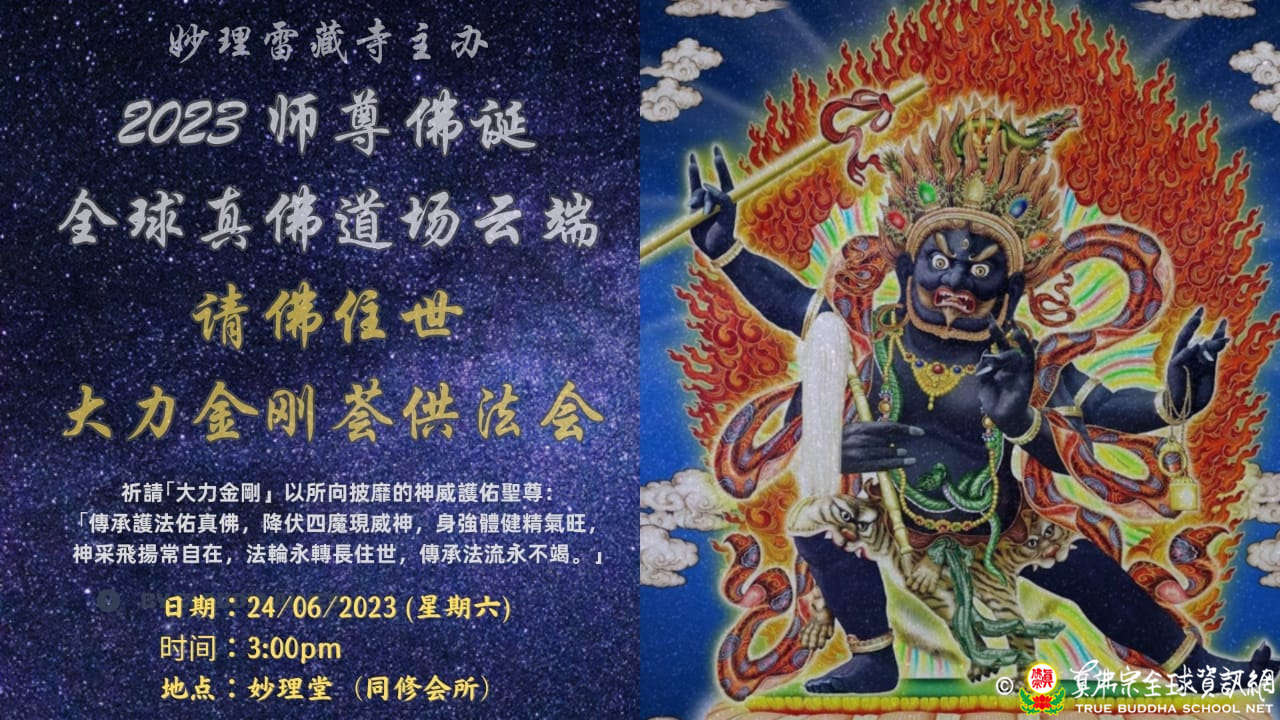 妙理雷藏寺主办
2023 师尊佛诞
全球真佛道场云端
请佛住世
大力金刚荟供法会
祈請「大力金剛」以所向披靡的神威護佑聖尊：
「傳承護法佑真佛，降伏四魔現威神，身強體健精氣旺，
神采飛揚常自在，法輪永轉長住世，傳承法流永不竭。」
日期：24/06/2023 (星期六)
时间：3:00pm
地点：妙理堂（同修会所）
© 真佛宗全球資訊網
TRUE BUDDHA SCHOOL NET